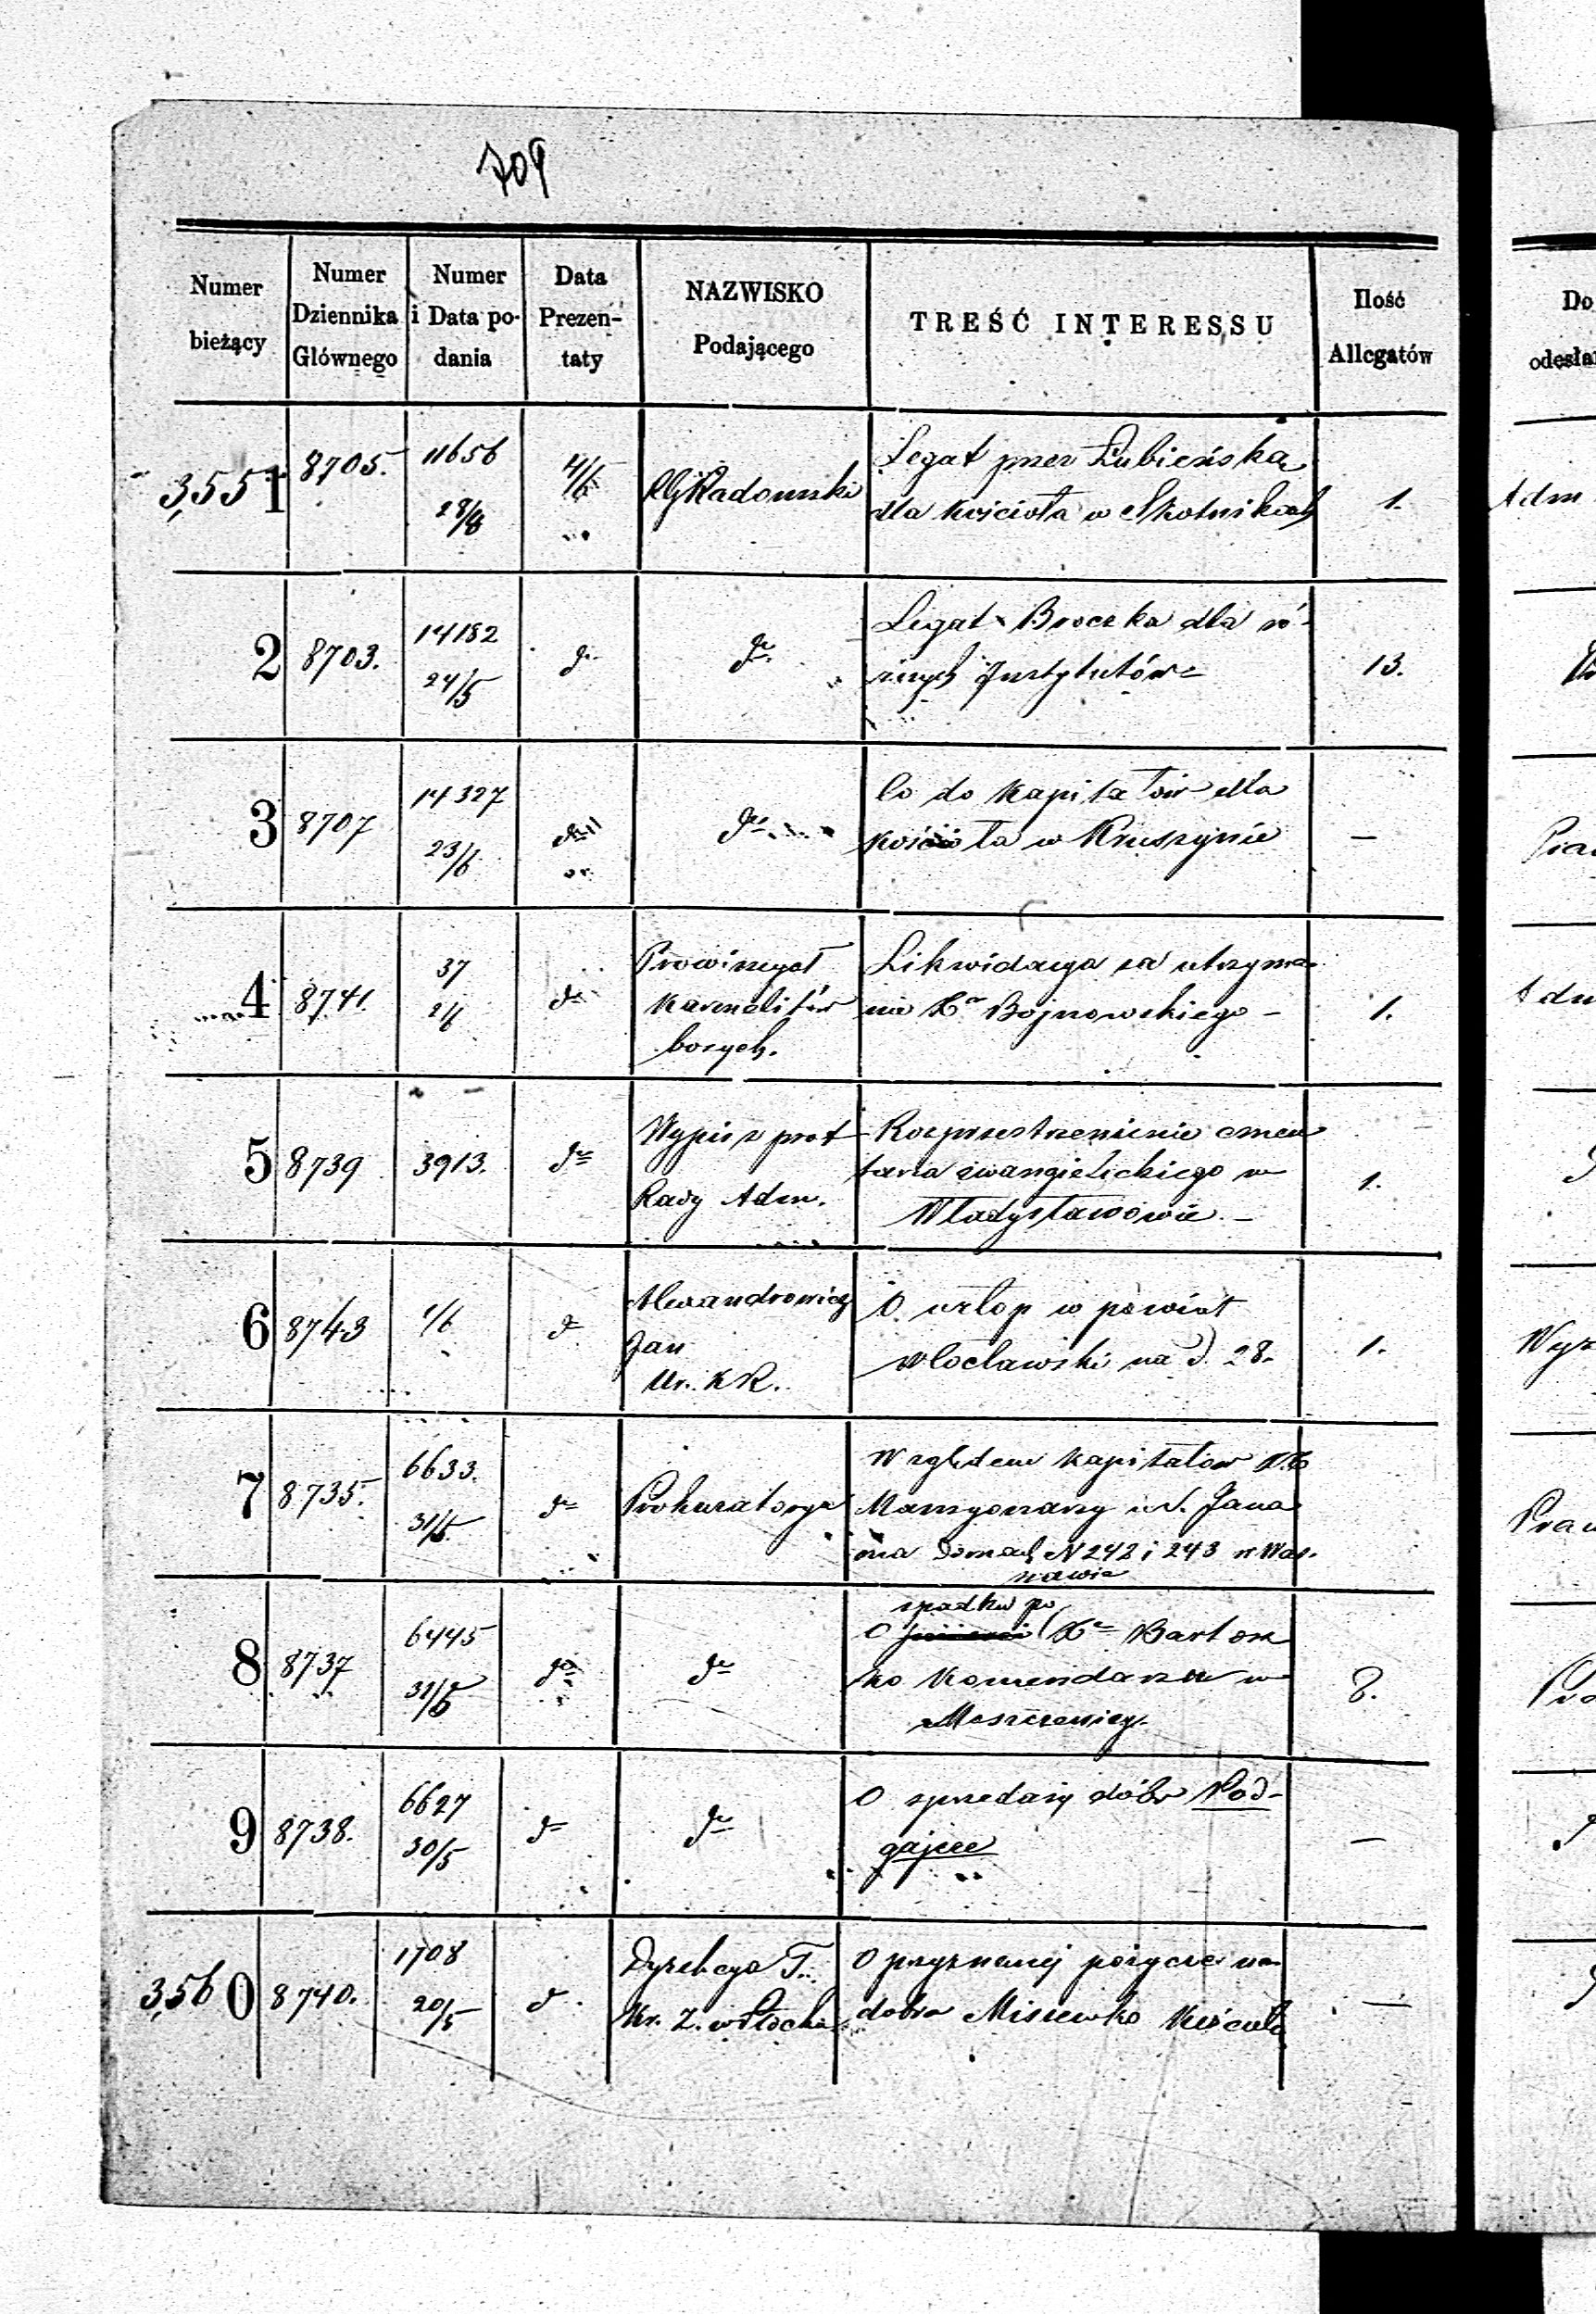 709
Numer bieżący
Numer Dziennika Głównego
Numer i Data podania
Data Prezentaty
NAZWISKO Podającego
TREŚĆ INTERESSU
Ilość Allegatów
Do
odesła
3,551
8705.
11656
28/8
4/6
RG Radomski
Legat przez Łubieńską
dla Kościoła w Skotnikach
1.
Adm
2
8703.
14182
24/5
do
do
Legat Broczka dla ró-
żnych Instytutów
13.
3
8707
14327
23/6
do
do
Co do Kapitałów dla
kościoła w Kruszynie
—
4
8741.
37
2/6
do
Prowincyał
Karmelitów
bosych.
Likwidacya za utrzyma-
nie Xa Bojnowskiego -
1.
Adm
5
8739
3913.
do
Wypis z prot
Rady Adm.
Rozprzestrzenienie cmen
tarza ewangelickiego w
Władysławowie. -
1.
6
8743
1/6
do
Alexandrowicz
Jan
Ur. KR.
O urlop w powiat
włocławski na d. 28.
1.
Wyz
7
8735.
6633.
31/5
do
Prokuratorya
Względem Kapitałów
Mansyonarzy Ś. Jana
na domach N 242 i 243 w War-
szawie
Praw
8
8737
6445
31/5
do
do
spadku po
O Xe Bartosz
ko Komendarzu w
Moszczenicy.
8.
Pra
9
8738.
6627
30/5
do
do
O sprzedaży dóbr Pod-
gajcee
—
3,560
8740.
1708
20/5
d.
Dyrekcya T.
Kr. Z. w Płocku
O przyznanej pożyczce na
dobra Misiewko Kościuła
—